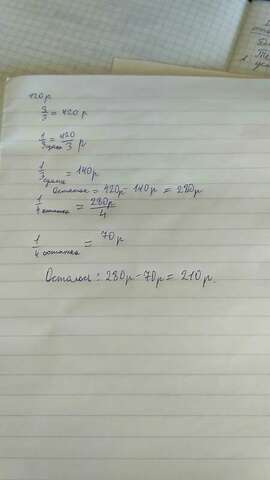 420р
3/3 = 420 р
1/3 = 420/3 р
1/3 = 140р
Остаток = 420р - 140р = 280р
1/4 остатка = 280р/4
1/4 остатка = 70р
Осталось: 280р - 70р = 210 р.